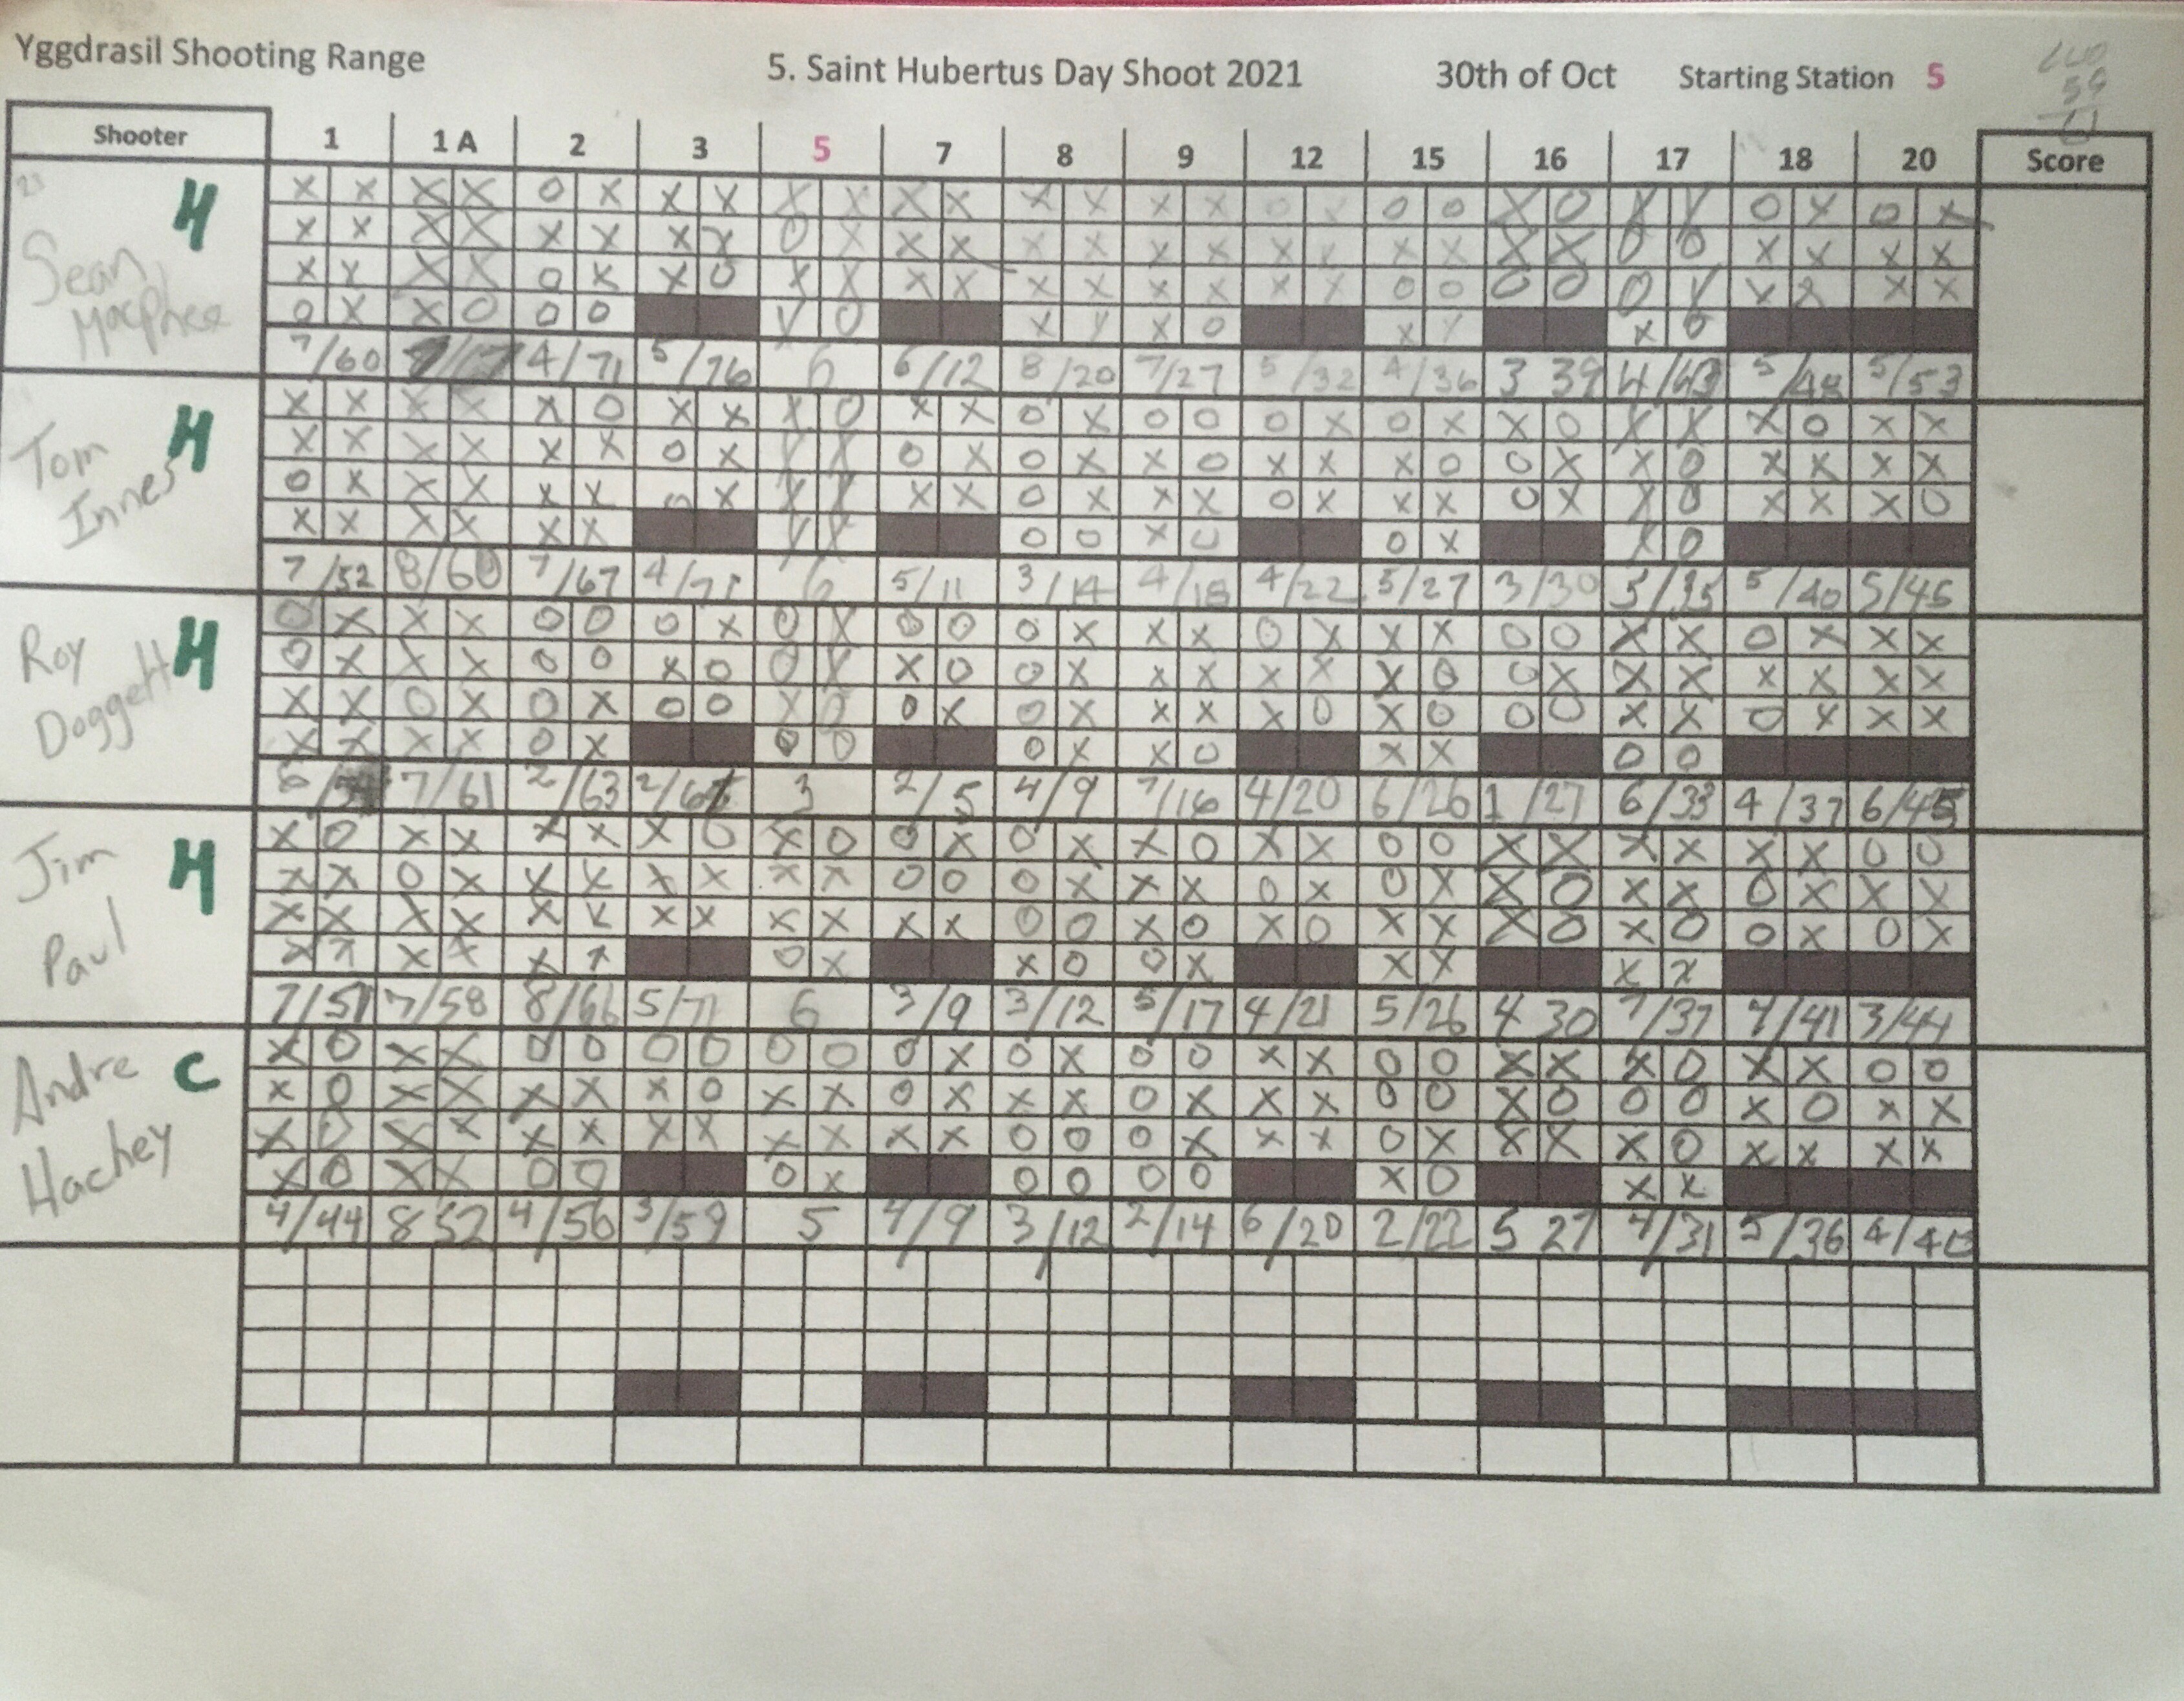 Yggdrasil Shooting Range 5. Saint Hubertus Day Shoot 2021 30th of Oct Starting Station 5
59
61
Shooter 1 1 A 2 3 5 7 8 9 12 15 16 17 18 20 Score
Sean MacPhee H
X X X X O X X X X X X X X X X X O X O O X O X X O X O X
X X X X X X X X O X X X X X X X X X X X X X O O X X X X
X X X X O X X O X X X X X X X X X X O O O O O X X X X X
O X X O O O X O X X X O X X X O
7/60 4/71 5/76 6 6/12 8/20 7/27 5/32 4/36 3 39 4/43 5/48 5/53
Tom Innes H
X X X X X O X X X O X X O X O O O X O X X O X X X O X X
X X X X X X O X X X O X O X X O X X X O O X X O X X X X
O X X X X X O X X X X X O X X X O X X X O X X O X X X O
X X X X X X X X O O X O O X X O
7/52 8/60 7/67 4/71 6 5/11 3/14 4/18 4/22 5/27 3/30 5/35 5/40 5/45
Roy Doggett H
O X X X O O O X O X O O O X X X O X X X O O X X O X X X
O X X X O O X O O X X O O X X X X X X O O X X X X X X X
X X O X O X O O X O O X O X X X X O X O O O X X O X X X
X X X X O X O O O X X O X X O O
6/54 7/61 2/63 2/65 3 2/5 4/9 7/16 4/20 6/26 1/27 6/33 4/37 6/43
Jim Paul H
X O X X X X X O X O O X O X X O X X O O X X X X X X O O
X X O X X X X X X X O O O X X X O X O X X O X X O X X X
X X X X X X X X X X X X O O X O X O X X X O X O O X O X
X X X X X X O X X O O X X X X X
7/51 7/58 8/66 5/71 6 3/9 3/12 5/17 4/21 5/26 4 30 7/37 4/41 3/44
Andre Hachey C
X O X X O O O O O O O X O X O O X X O O X X X O X X O O
X O X X X X X O X X O X X X O X X X O O X O O O X O X X
X O X X X X X X X X X X O O O X X X O X X X X O X X X X
X O X X O O O X O O O O X O X X
4/44 8 52 4/56 3/59 5 4/9 3/12 2/14 6/20 2/22 5 27 4/31 5/36 4/40